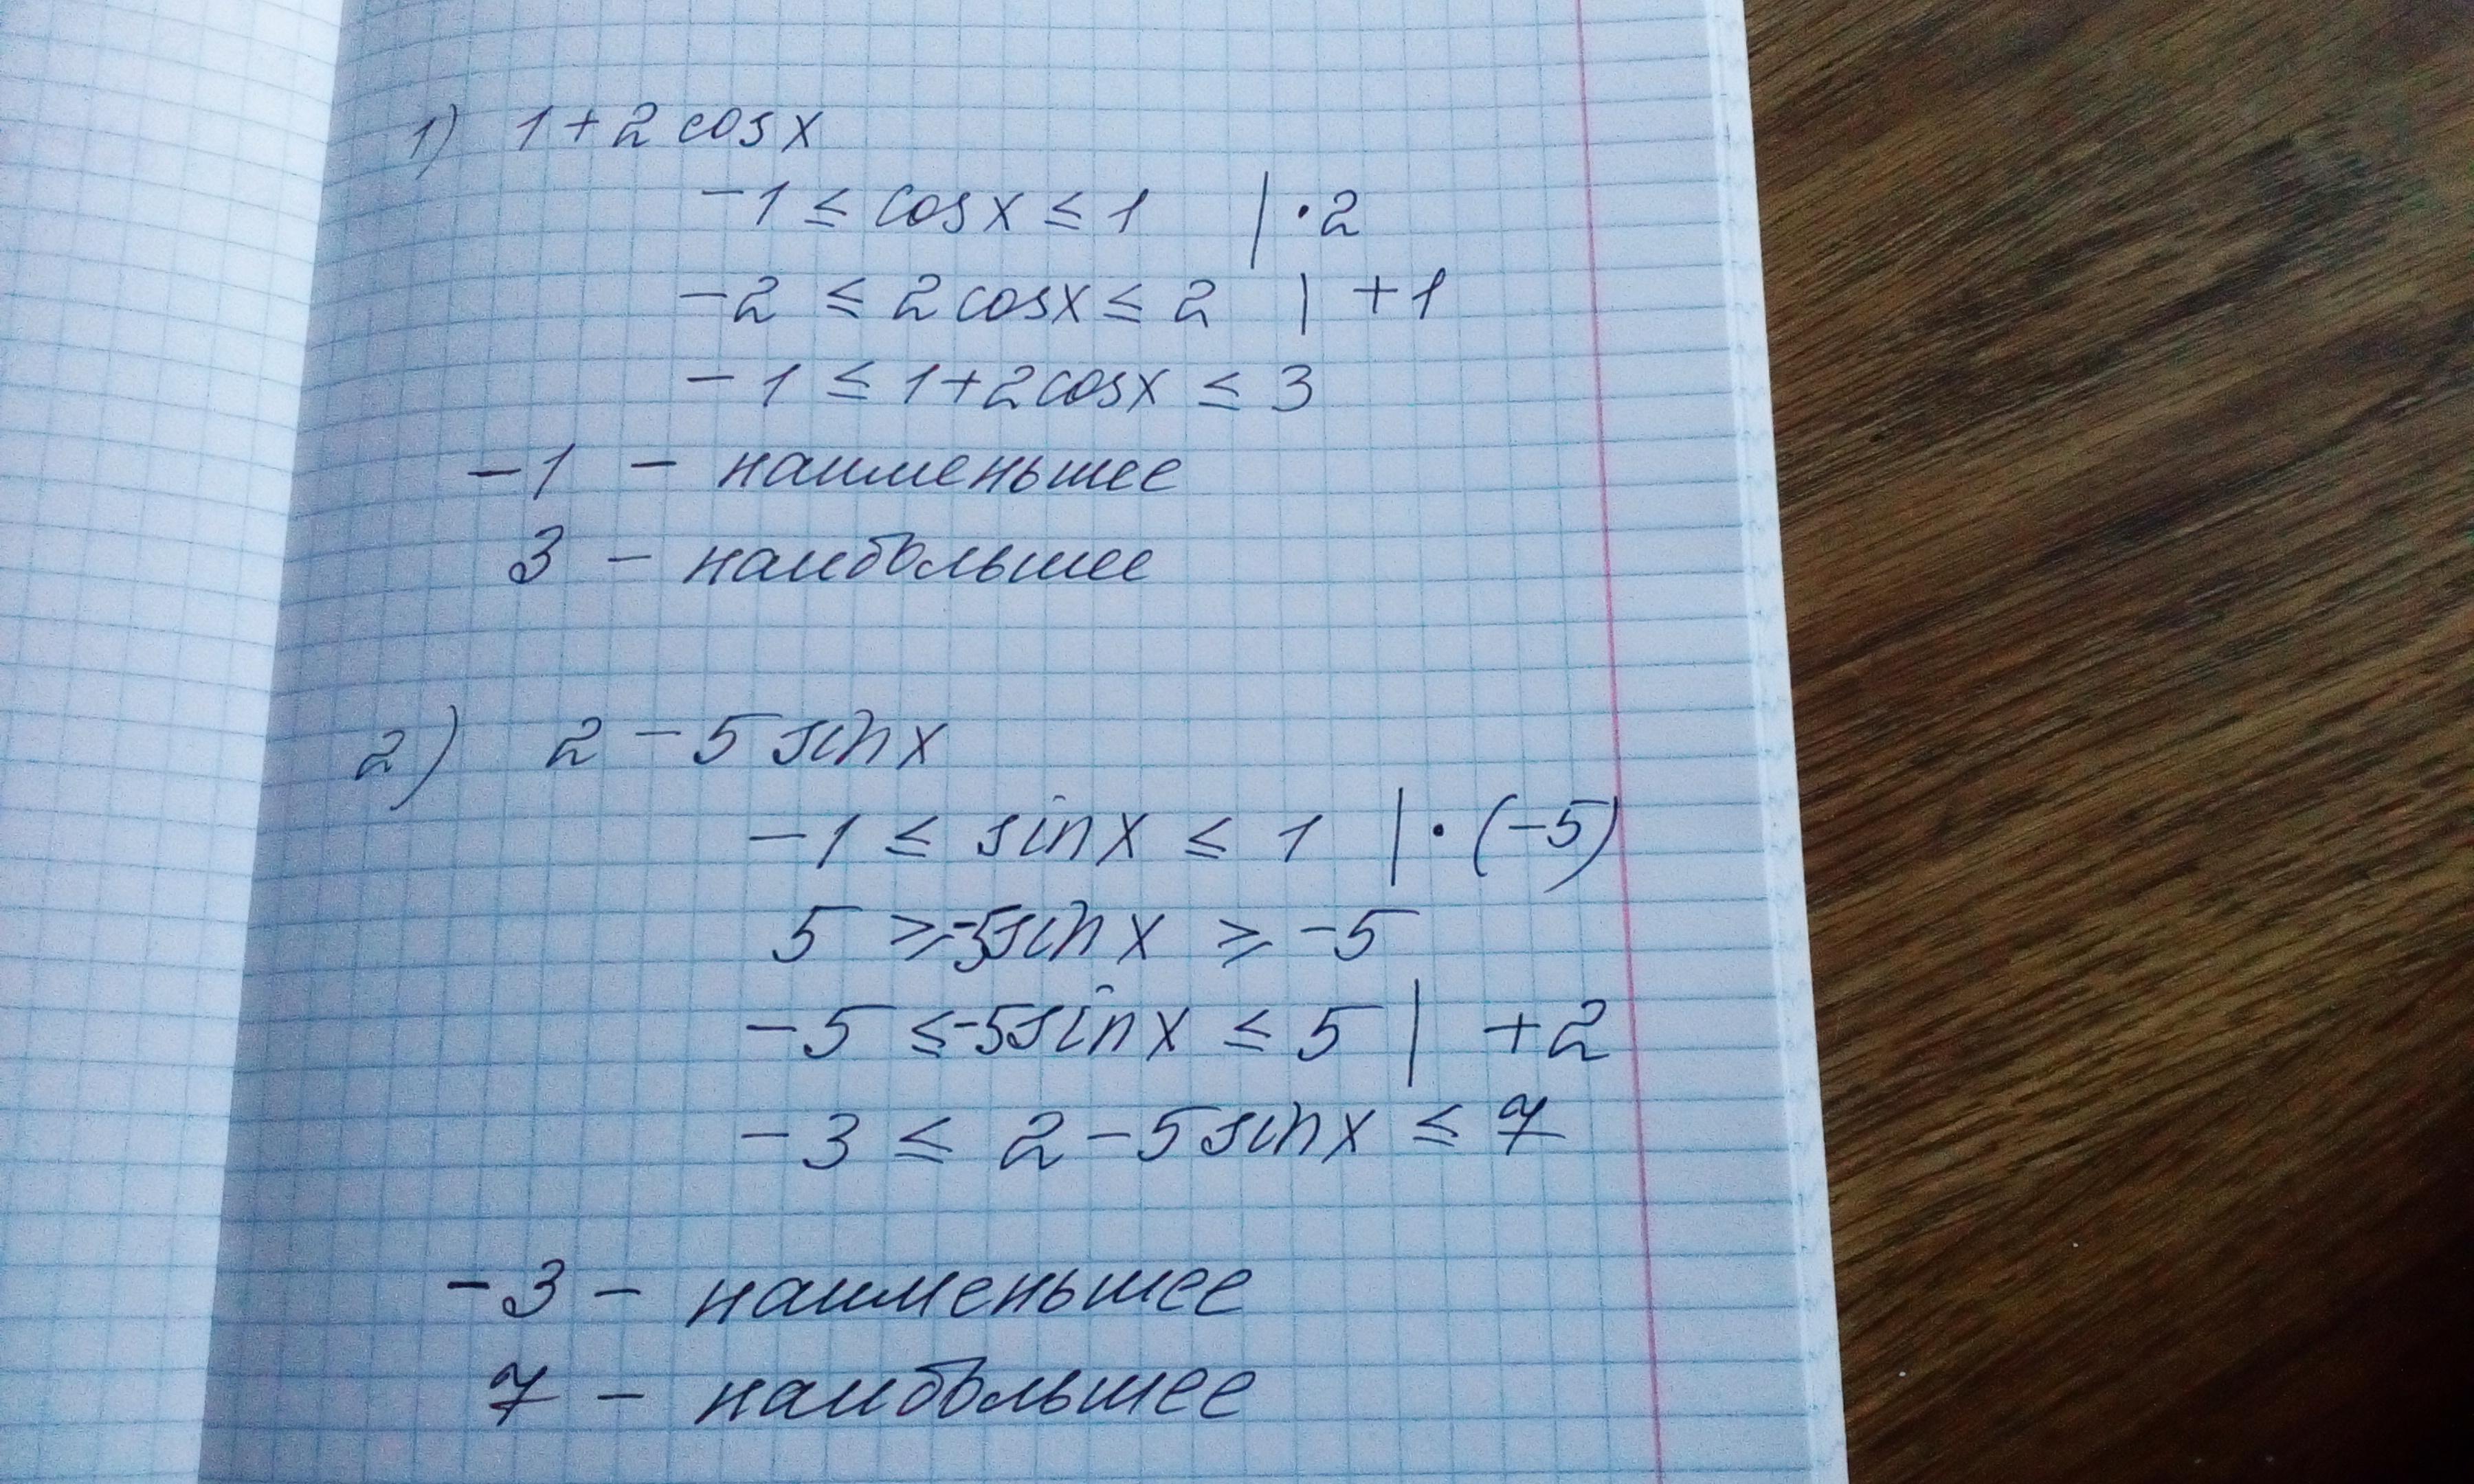 1) 1+2cosx
-1 ≤ cosx ≤ 1 | ·2
-2 ≤ 2cosx ≤ 2 | +1
-1 ≤ 1+2cosx ≤ 3
-1 - наименьшее
3 - наибольшее
2) 2-5sinx
-1 ≤ sinx ≤ 1 | ·(-5)
5 ≥ -5sinx ≥ -5
-5 ≤ -5sinx ≤ 5 | +2
-3 ≤ 2-5sinx ≤ 7
-3 - наименьшее
7 - наибольшее